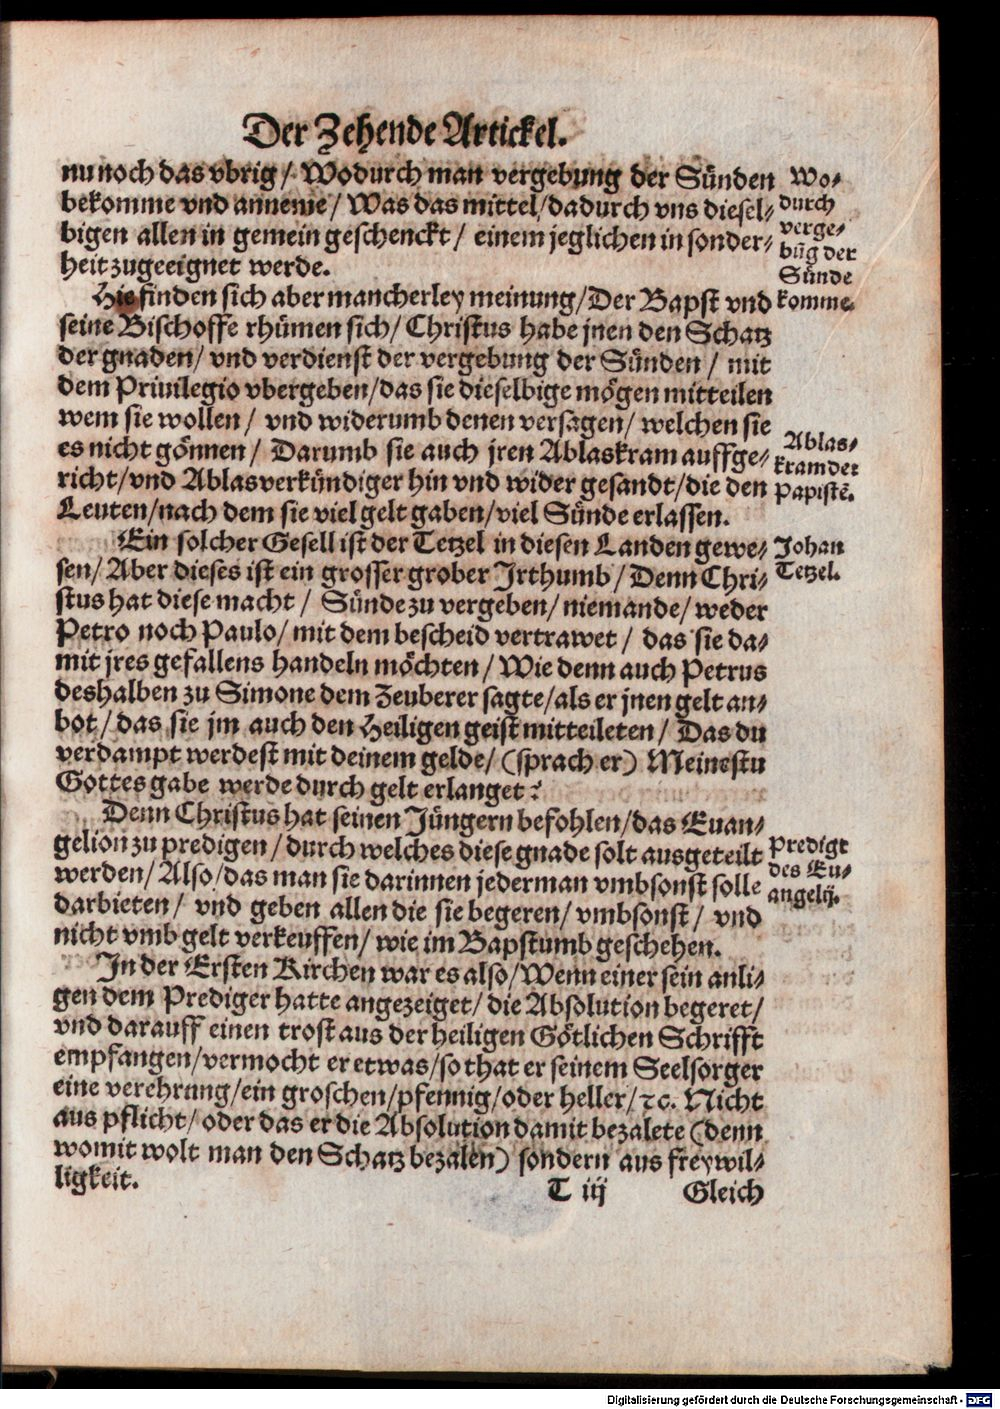 Der Zehende Artickel.
nu noch das vbrig / Wodurch man vergebung der Sünden
bekomme vnd anneme / Was das mittel / dadurch vns diesel-
bigen allen in gemein geschenckt / einem jeglichen in sonder-
heit zugeeignet werde.
Wo-
durch
verge-
būg der
Sünde
komme.
Hie finden sich aber mancherley meinung / Der Bapst vnd
seine Bischoffe rhümen sich / Christus habe jnen den Schatz
der gnaden / vnd verdienst der vergebung der Sünden / mit
dem Priuilegio vbergeben / das sie dieselbige mögen mitteilen
wem sie wollen / vnd widerumb denen versagen / welchen sie
es nicht gönnen / Darumb sie auch jren Ablaskram auffge-
richt / vnd Ablasverkündiger hin vnd wider gesandt / die den
Leuten / nach dem sie viel gelt gaben / viel Sünde erlassen.
Ablas-
kram der
Papistē.
Ein solcher Gesell ist der Tetzel in diesen Landen gewe-
sen / Aber dieses ist ein grosser grober Jrthumb / Denn Chri-
stus hat diese macht / Sünde zu vergeben / niemande / weder
Petro noch Paulo / mit dem bescheid vertrawet / das sie da-
mit jres gefallens handeln möchten / Wie denn auch Petrus
deshalben zu Simone dem Zeuberer sagte / als er jnen gelt an-
bot / das sie jm auch den Heiligen geist mitteileten / Das du
verdampt werdest mit deinem gelde / (sprach er) Meinestu
Gottes gabe werde durch gelt erlanget?
Johan
Tetzel.
Denn Christus hat seinen Jüngern befohlen / das Euan-
gelion zu predigen / durch welches diese gnade solt ausgeteilt
werden / Also / das man sie darinnen jederman vmbsonst solle
darbieten / vnd geben allen die sie begeren / vmbsonst / vnd
nicht vmb gelt verkeuffen / wie im Bapstumb geschehen.
Predigt
des Eu-
angelij.
In der Ersten Kirchen war es also / Wenn einer sein anli-
gen dem Prediger hatte angezeiget / die Absolution begeret /
vnd darauff einen trost aus der heiligen Götlichen Schrifft
empfangen / vermocht er etwas / so that er seinem Seelsorger
eine verehrung / ein groschen / pfennig / oder heller / ꝛc. Nicht
aus pflicht / oder das er die Absolution damit bezalete (denn
womit wolt man den Schatz bezalen) sondern aus freywil-
ligkeit.
T iij Gleich
Digitalisierung gefördert durch die Deutsche Forschungsgemeinschaft - DFG